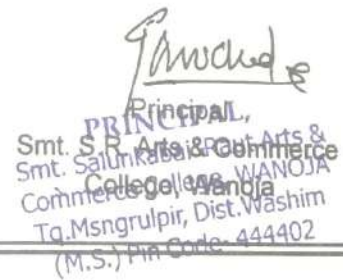 Principal,
Smt. S.R. Arts & Commerce
College, Wanoja
PRINCIPAL,
Smt. Salunkabai Raut Arts &
Commerce College, WANOJA
Tq.Msngrulpir, Dist.Washim
(M.S.) Pin Code- 444402